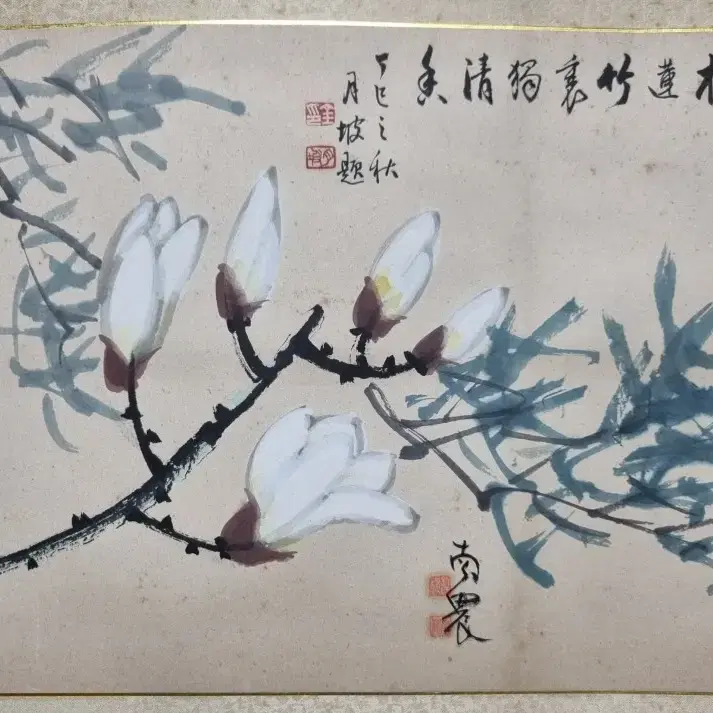 木蓮竹裏獨清香
丁巳之秋
月坡題
南農